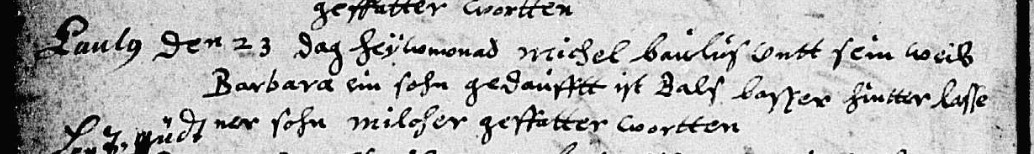 gefatter wortten
Paulÿ Den 23 dag heÿwmonad michel baulus Vntt sein weib
Barbara ein sohn gedaufft ist Bals hintter lasse
ner sohn milcher gefatter wortten